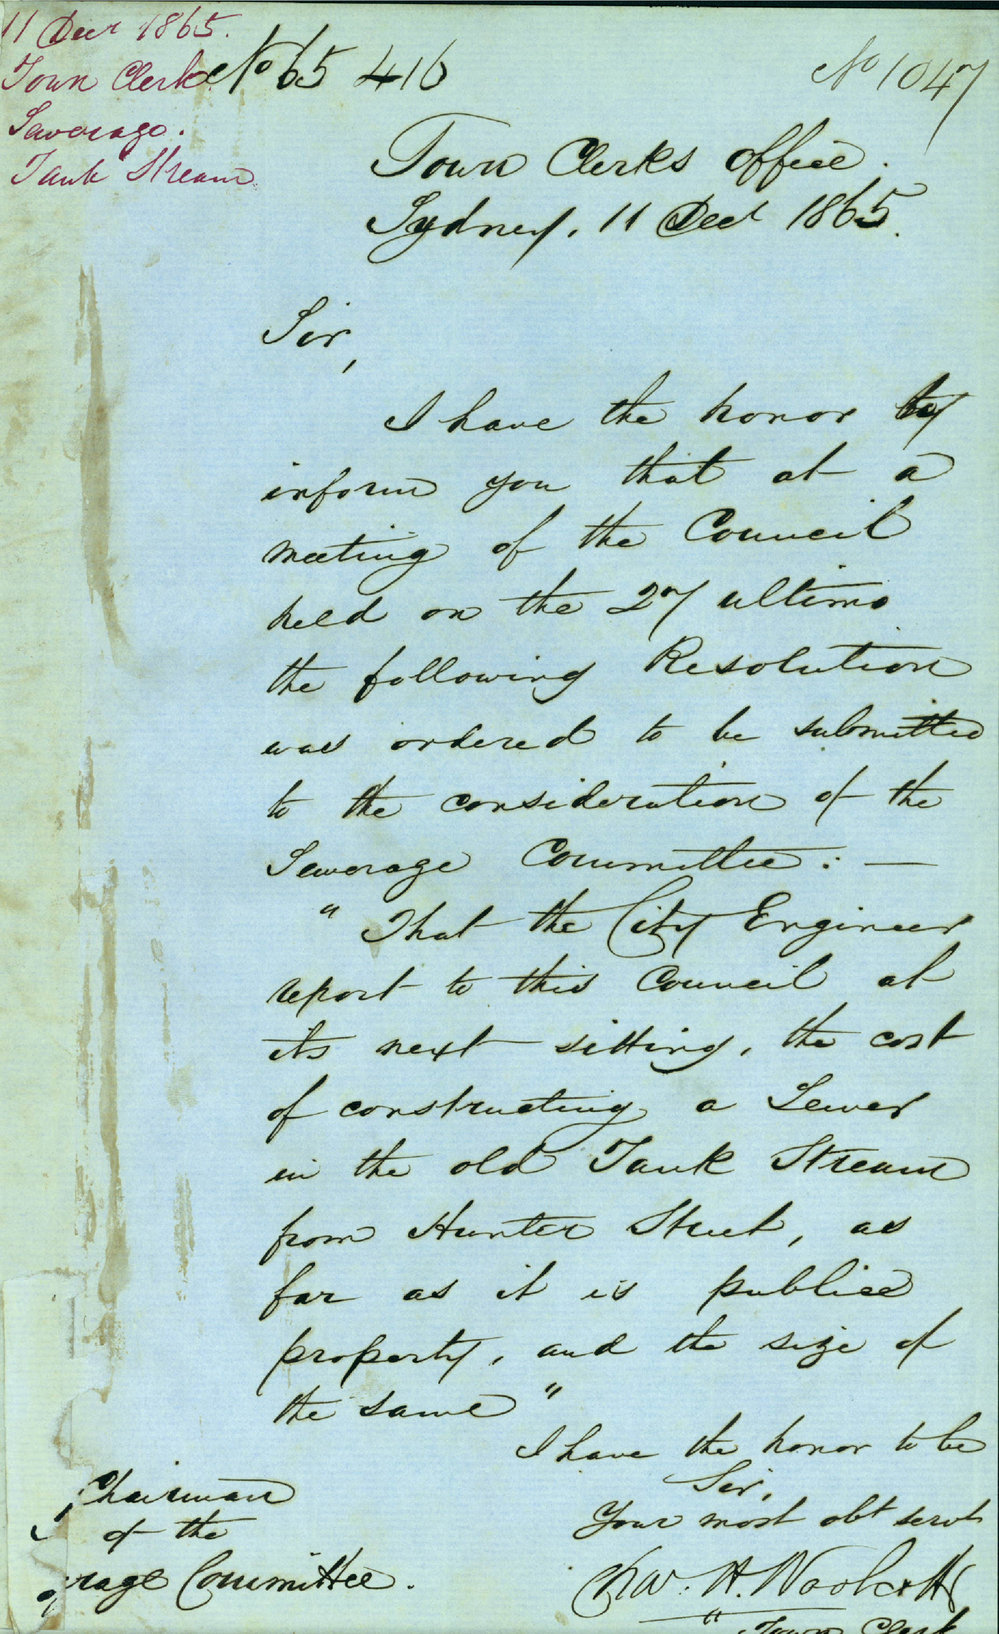 11 Decr 1865.
Town Clerk
Sewerage.
Tank Stream
No 65 416
No 1047
Town Clerks office.
Sydney, 11 Decr 1865.
Sir,
I have the honor to
inform you that at a
meeting of the Council
held on the 27 ultimo
the following Resolution
was ordered to be submitted
to the consideration of the
Sewerage Committee: —
" That the City Engineer
report to this Council at
its next sitting, the cost
of constructing a Sewer
in the old Tank Stream
from Hunter Street, as
far as it is public
property, and the size of
the same "
I have the honor to be
Sir,
Your most obt servt
Chas. H. Woolcott
Town Clerk
Chairman
of the
erage Committee.